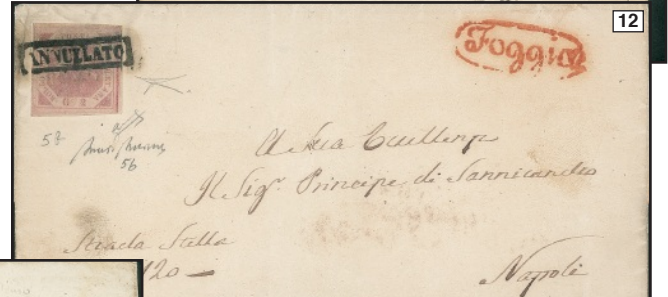 12
ANNULLATO
Foggia
58
56
A Sua Eccellenza
Il Sigr Principe di Sannicandro
Strada Stella
120
Napoli